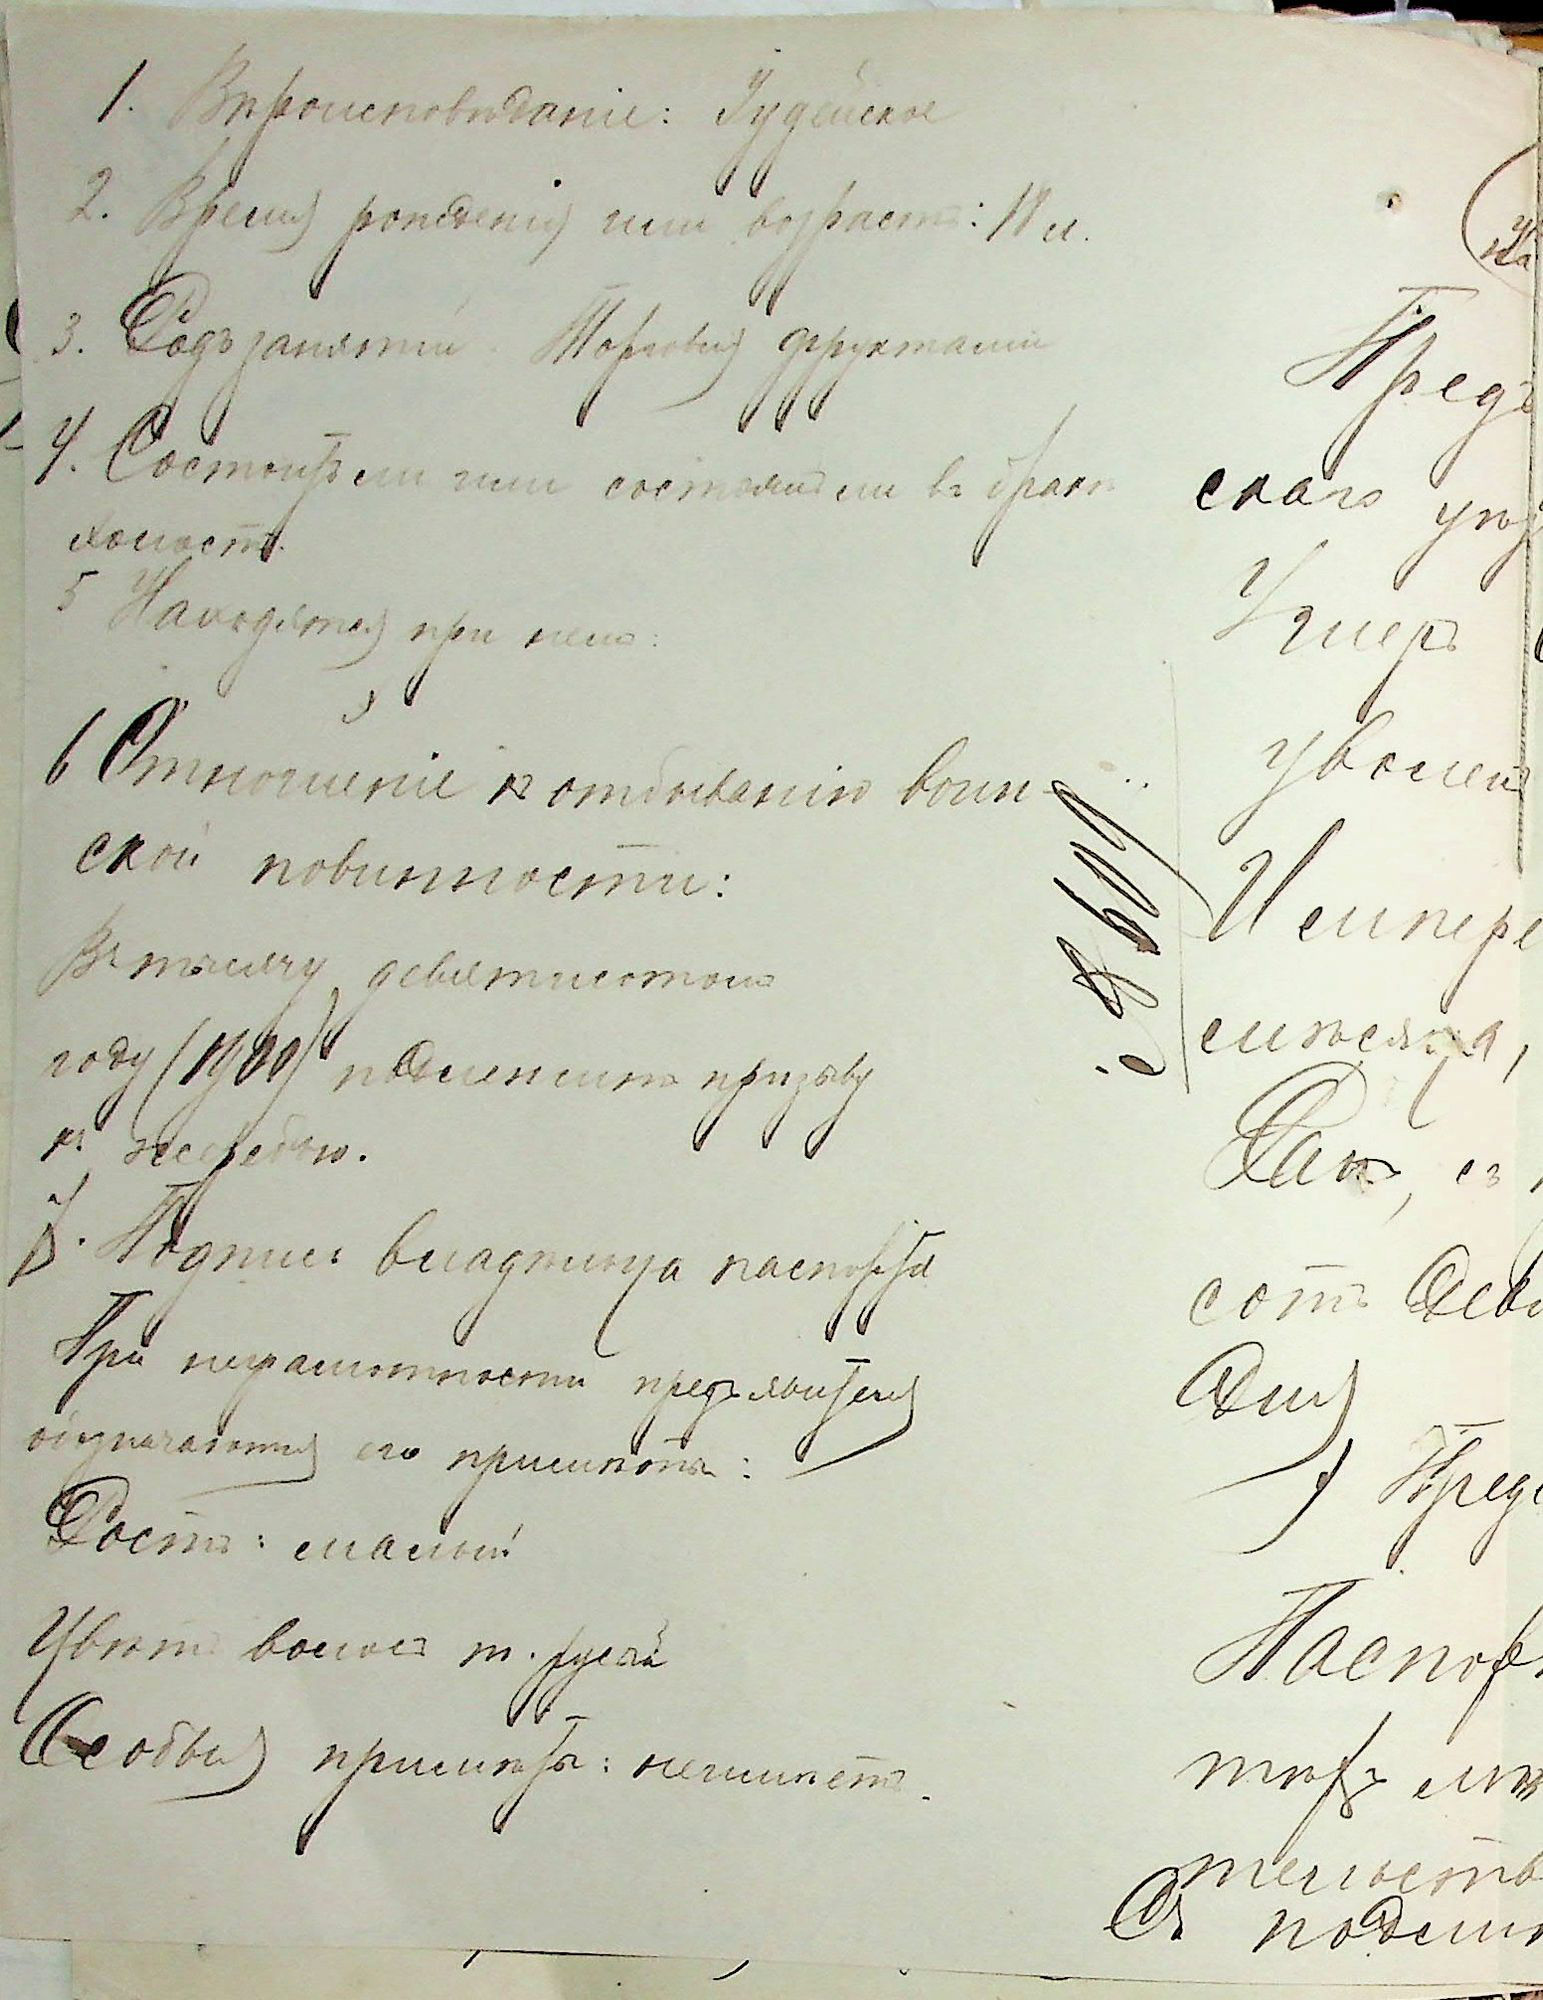 1. Вѣроисповѣданіе: Іудейское
2. Время рожденія или возрастъ: 18 л.
3. Родъ занятій Торговля фруктами
4. Состоитъ ли или состоялъ ли въ бракѣ
холостъ.
5 Находятся при немъ:
6 Отношеніе къ отбыванію воин-
ской повинности:
Въ тысячу девятисотомъ
году (1900) подлежитъ призыву
къ жеребью.
7. Подпись владѣльца паспорта
При неграмотности предъявителя
обозначаются его примѣты:
Ростъ: малый
Цвѣтъ волосъ т. русый
Особыя примѣты: неимѣетъ.
Предъ
скаго уѣз
уволен
И спере
симъсяца,
Данъ, съ
сотъ Девя
Для
Пред
Паспор
тиръ
тельств
Съ подли